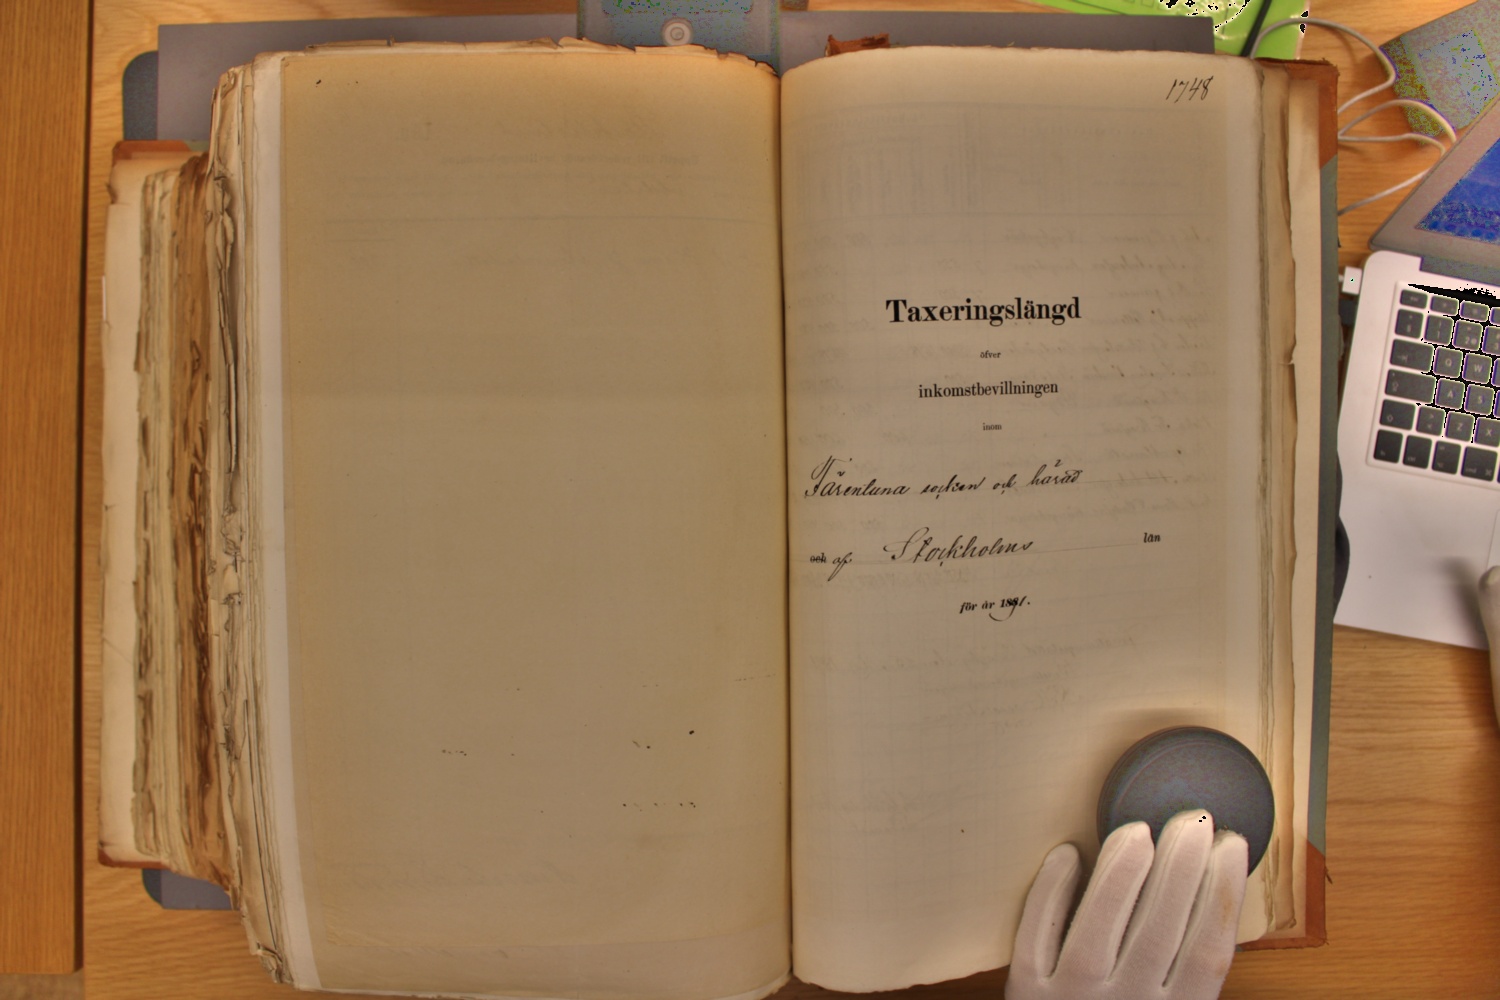 1748
Taxeringslängd
öfver
inkomstbevillningen
inom
Färentuna socken och härad
och af Stockholms län
för år 1891.